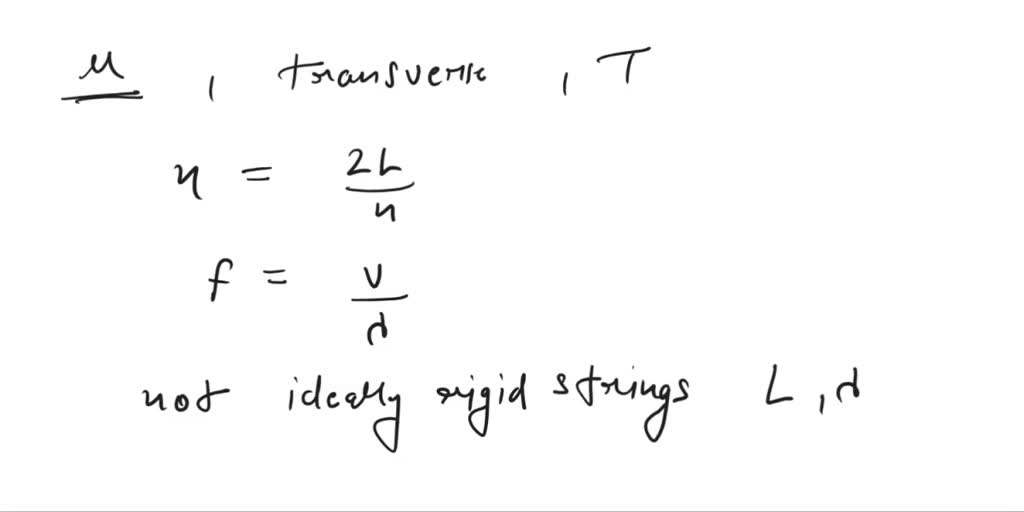 μ , transverse , T
n = 2L/n
f = v/λ
not ideally rigid strings L, λ